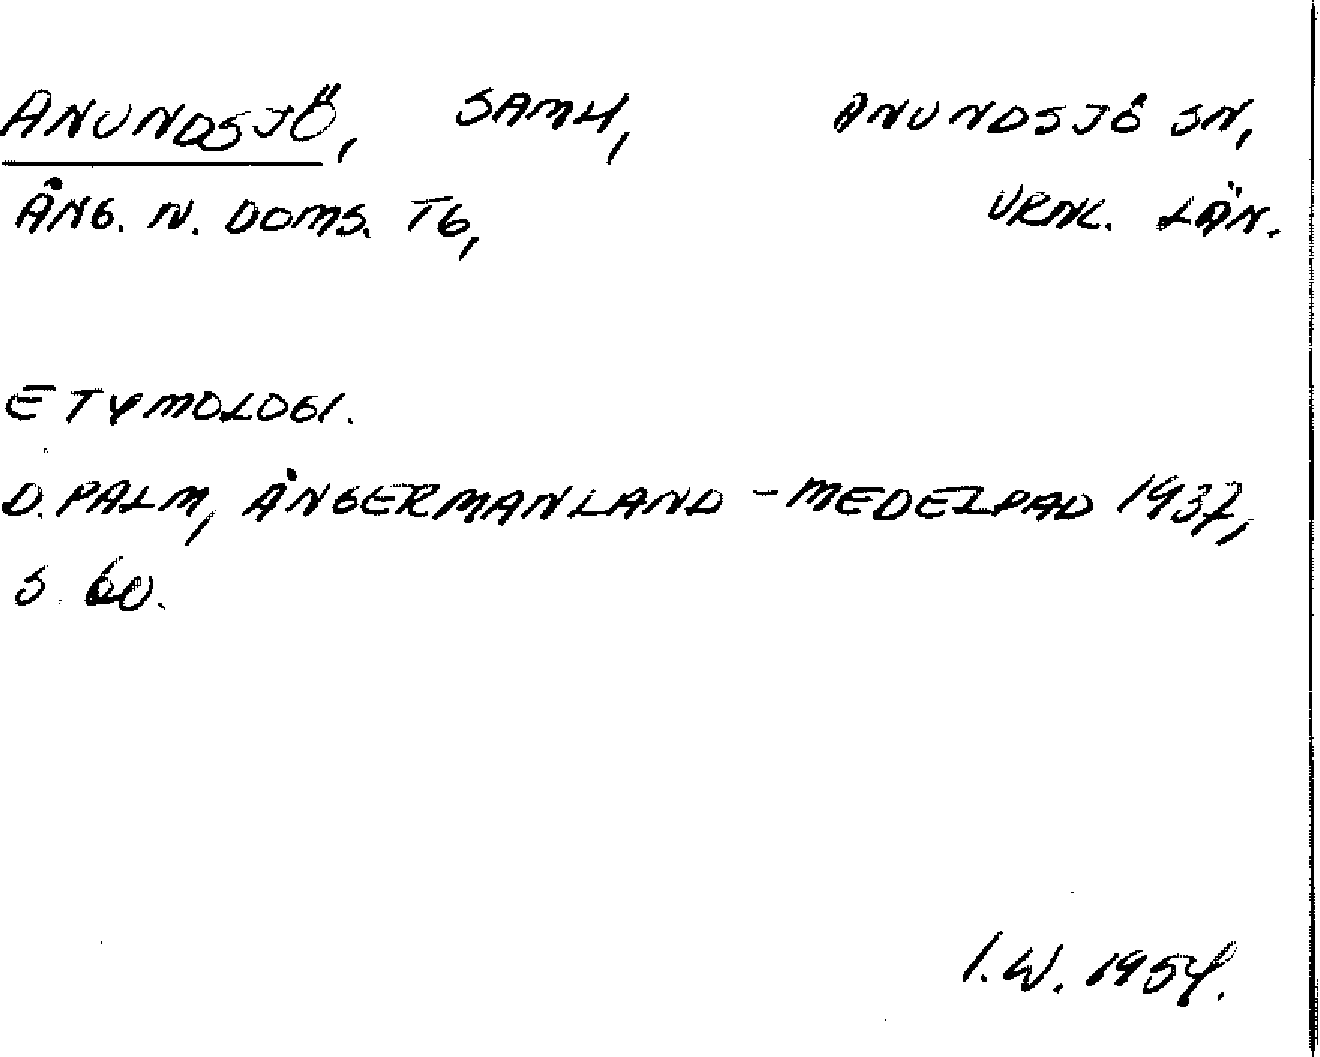 ANUNDSJÖ, SAMH, ANUNDSJÖ SN,
ÅNG. N. DOMS. TG, VRNL. LÄN.
ETYMOLOGI.
D. PALM, ÅNGERMANLAND - MEDELPAD 1937,
S. 60.
I.W. 1954.